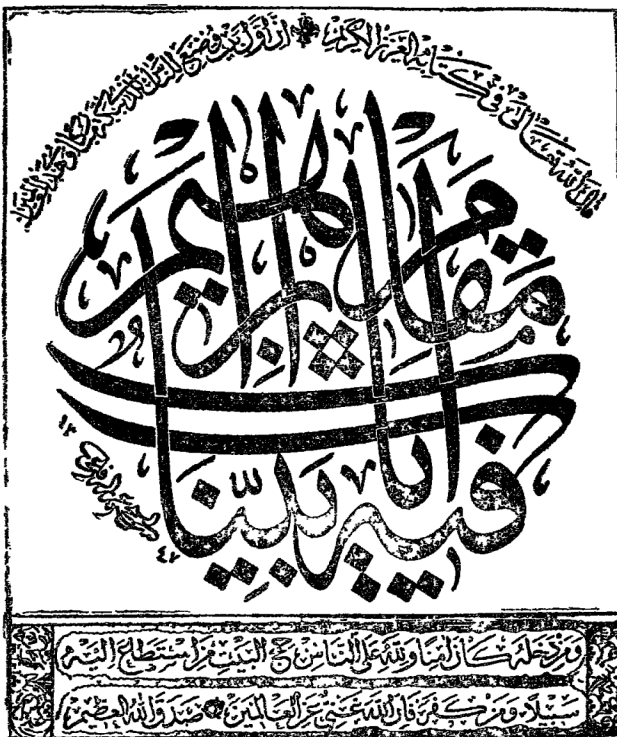 قال الله تعالى في كتابه العزيز الكريم إن أول بيت وضع للناس للذي ببكة مباركا وهدى للعالمين
فِيهِ آيَاتٌ بَيِّنَاتٌ
مَقَامُ إِبْرَاهِيمَ
ومن دخله كان آمنا ولله على الناس حج البيت من استطاع إليه
سبيلا ومن كفر فإن الله غني عن العالمين صدق الله العظيم